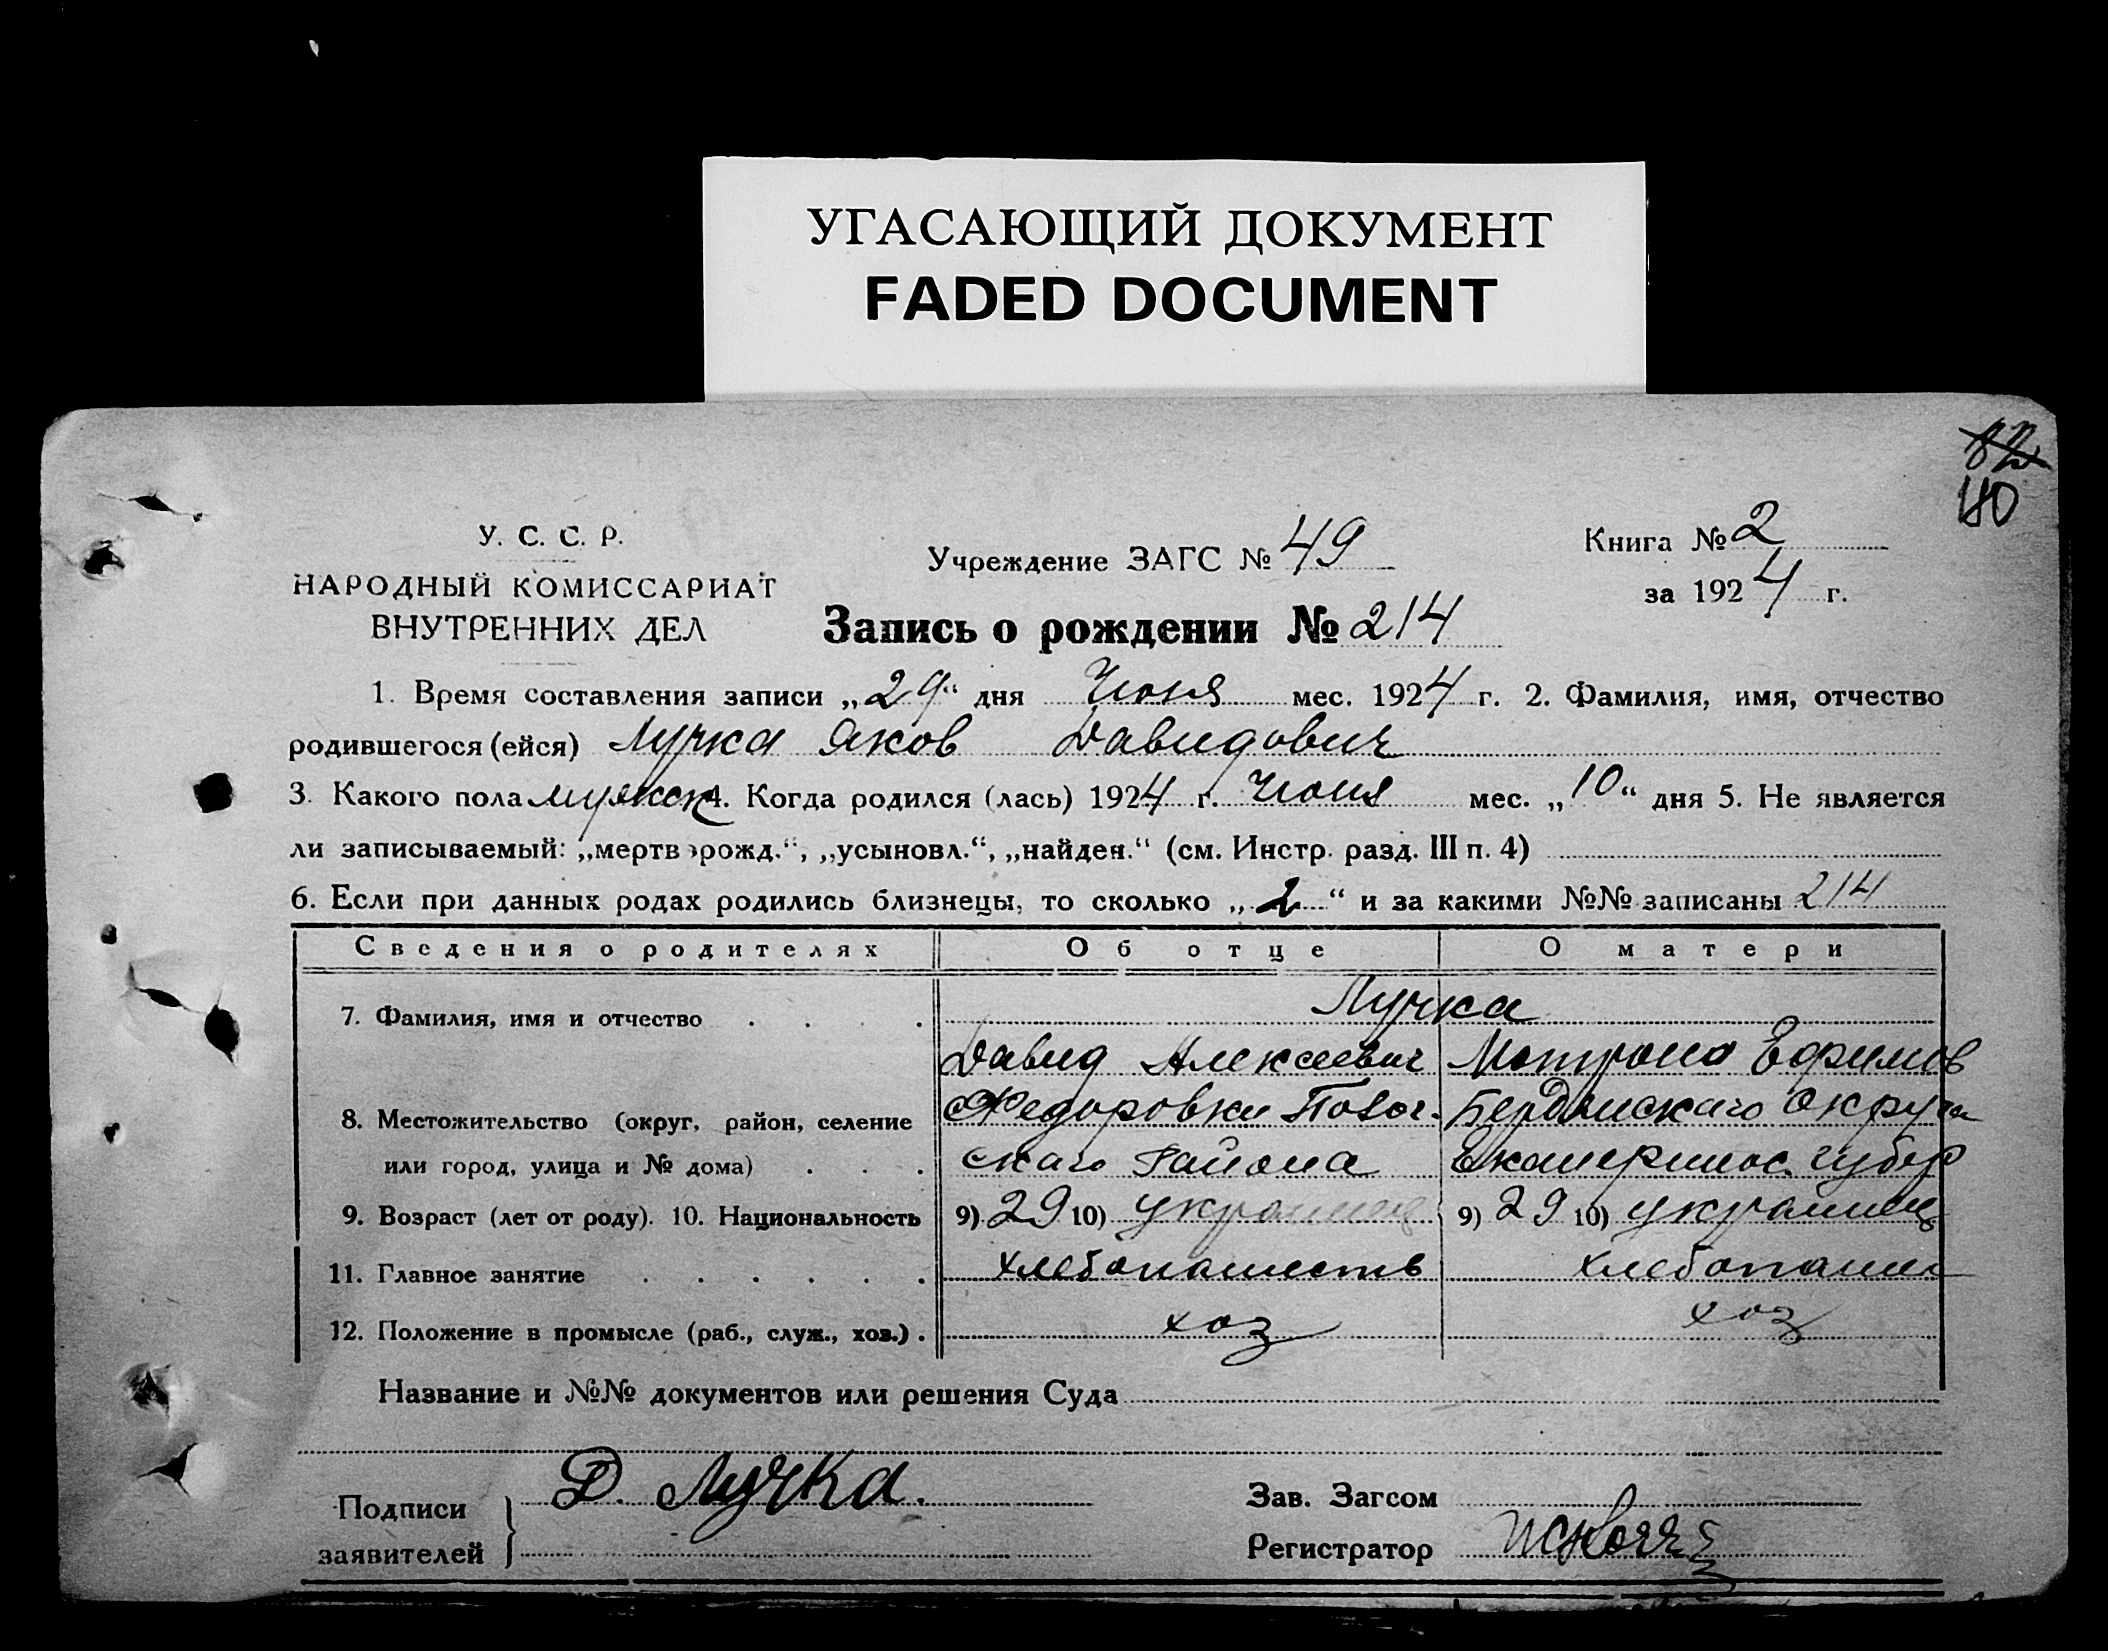 УГАСАЮЩИЙ ДОКУМЕНТ
FADED DOCUMENT
82
40
У. С. С. Р.
НАРОДНЫЙ КОМИССАРИАТ
ВНУТРЕННИХ ДЕЛ
Учреждение ЗАГС № 49
Книга № 2
за 1924 г.
Запись о рождении № 214
1. Время составления записи „29“ дня Июня мес. 1924 г. 2. Фамилия, имя, отчество
родившегося (ейся) Лучка Яков Давидович
3. Какого пола мужск 4. Когда родился (лась) 1924 г. Июня мес. „10“ дня 5. Не является
ли записываемый: „мертворожд.“, „усыновл.“, „найден.“ (см. Инстр. разд. III п. 4)
6. Если при данных родах родились близнецы, то сколько „2“ и за какими №№ записаны 214
Сведения о родителях Об отце О матери
7. Фамилия, имя и отчество . . . . Лучка
Давид Алексеевич Матрона Ефимов
8. Местожительство (округ, район, селение Федоровки Бердянскаго Округа
или город, улица и № дома) . . . скаго Района Екатеринос. губер
9. Возраст (лет от роду). 10. Национальность 9) 29 10) украинец 9) 29 10) украинец
11. Главное занятие . . . . . . хлебопашеств хлебопашец
12. Положение в промысле (раб., служ., хоз.) . хоз хоз
Название и №№ документов или решения Суда
Подписи
заявителей
Д. Лучка.
Зав. Загсом
Регистратор